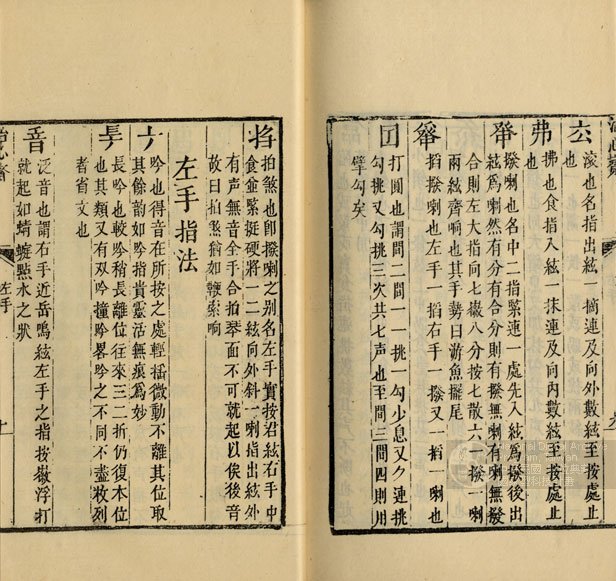 滾也名指出絃一抹連及向內數絃至按處止
也
弗
拂也食指入絃一抹連及向外數絃至按處止
也
撥喇也名中二指緊連一處先入絃爲撥後出
絃爲喇然有分有合分則有撥無喇有喇無撥
合則左大指向七徽八分按七散六一撥一喇
兩絃齊响也其手勢曰游魚擺尾
搯撥喇也左手一搯右手一撥又一搯一喇也
打圓也謂間二間一一挑一勾少息又夕連挑
勾挑又勾挑三次共七声也至間三間四則用
擘勾矣
拍煞也即撥喇之别名左手實按君絃右手中
食金緊挺硬將一二絃向外斜一喇指出絃外
有声無音全手合拍琴面不可就起以俟後音
故曰拍煞猶如鞭索响
左手指法
吟也得音在所按之處輕搖微動不離其位取
其餘韵如吟指貴靈活無痕爲妙
長吟也較吟稍長離位往來三二折仍復本位
也其類又有双吟撞吟畧吟之不同不盡枚列
者省文也
泛音也謂右手近岳鳴絃左手之指按徽浮打
就起如蜻蜓點水之狀
左手
十